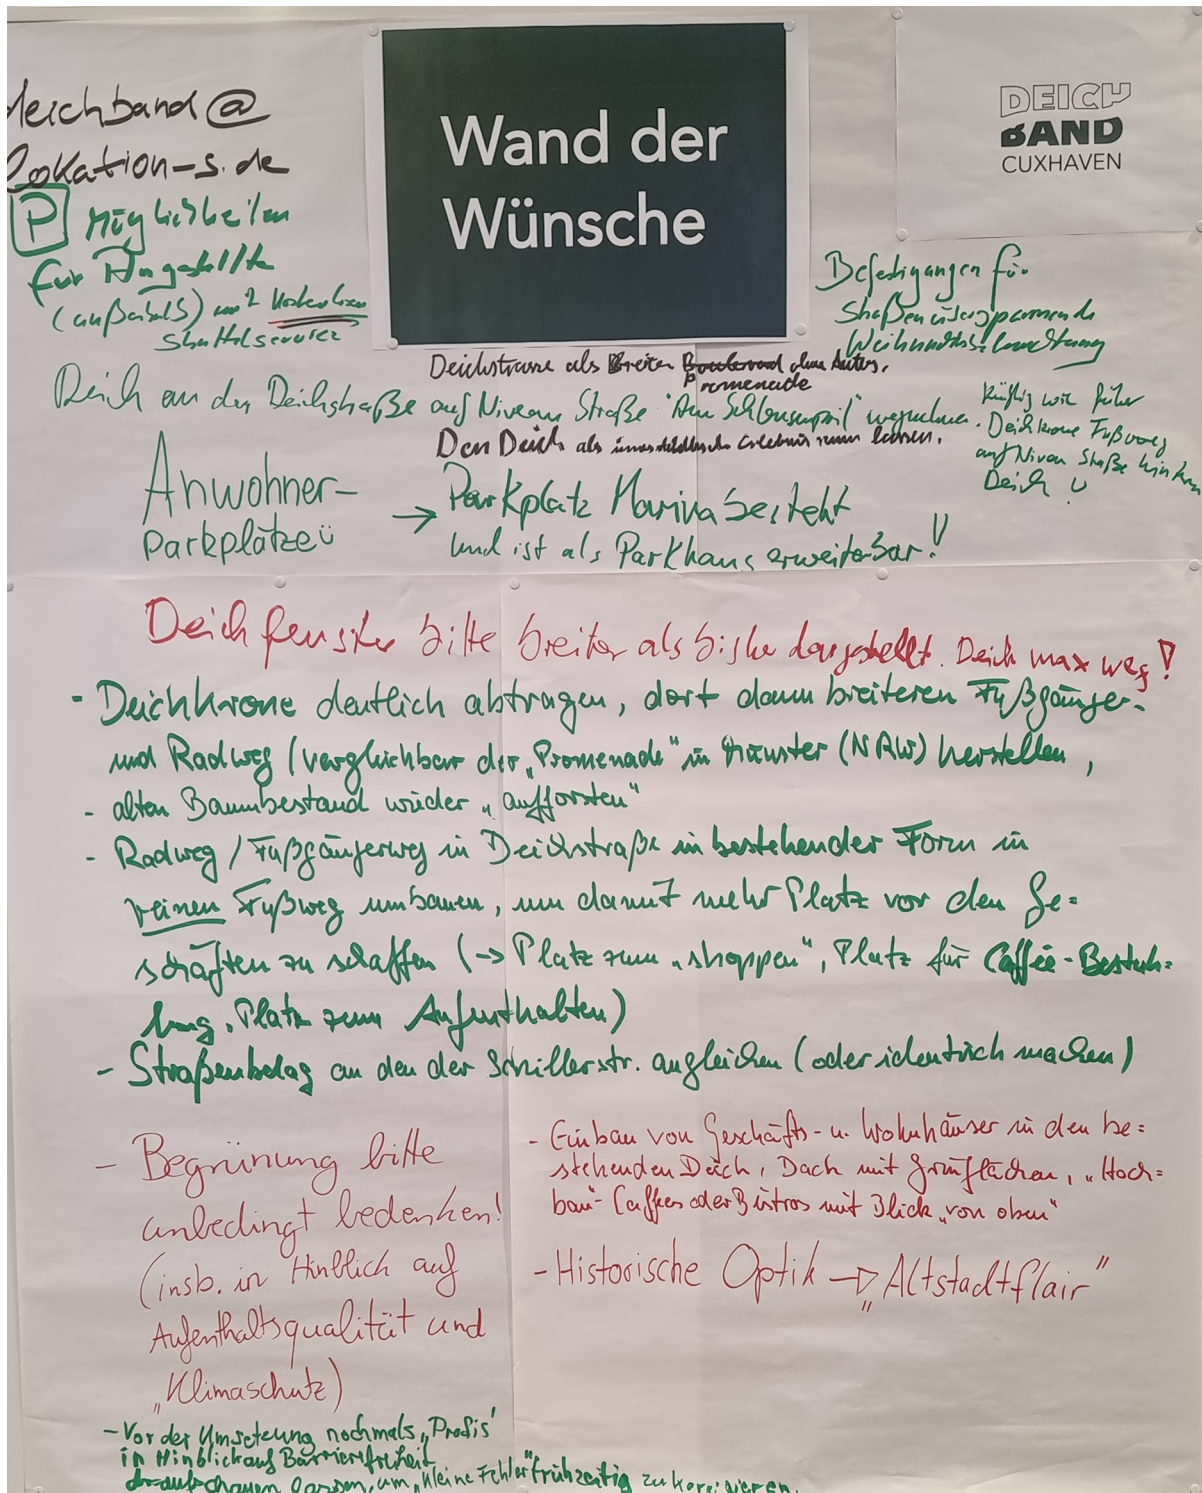 Wand der
Wünsche
DEICH
BAND
CUXHAVEN
deichband@
lokation-s.de
P Möglichkeiten
für Angestellte
(außerhalb) mit kostenlosen
Shuttleservice
Befestigungen für
Straßenüberspannende
Weihnachtsbeleuchtung
Deichstrasse als Breiter Boulevard ohne Autos.
Promenade
Deich an der Deichstraße auf Niveau Straße "Am Schleusenpriel" wegnehmen.
Künftig wie früher
Deichkrone Fußweg
auf Niveau Straße hinterm
Deich
Den Deich als innerstädtische Erlebnis raum lassen.
Anwohner-
parkplätze
→ Parkplatz Marina besteht
und ist als Parkhaus erweiterbar!
Deichfenster bitte breiter als bisher dargestellt. Deich max weg!
- Deichkrone deutlich abtragen, dort dann breiteren Fußgänger-
und Radweg (vergleichbar der „Promenade" in Münster (NRW) herstellen,
- alten Baumbestand wieder „aufforsten"
- Radweg / Fußgängerweg in Deichstraße in bestehender Form in
reinen Fußweg umbauen, um damit mehr Platz vor den Ge=
schäften zu schaffen (→ Platz zum „shoppen", Platz für Caffée-Bestuh=
lung, Platz zum Aufenthalten)
- Straßenbelag an den der Schillerstr. angleichen (oder identisch machen)
- Begrünung bitte
unbedingt bedenken!
(insb. in Hinblick auf
Aufenthaltsqualität und
„Klimaschutz)
- Einbau von Geschäfts- u. Wohnhäuser in den be=
stehenden Deich, Dach mit Grünflächen, „Hoch=
bau"- Caffees oder Bistros mit Blick „von oben"
- Historische Optik → „Altstadtflair"
- Vor der Umsetzung nochmals „Profis'
in Hinblick auf Barrierefreiheit
draufschauen lassen, um „kleine Fehler" frühzeitig zu korrigieren.